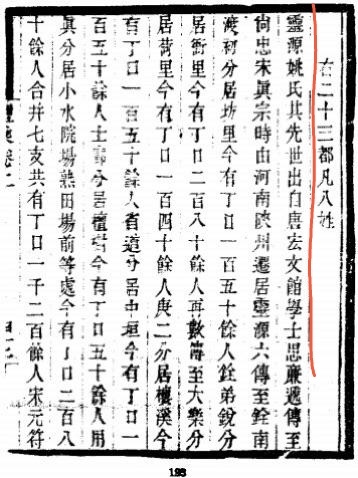 右二十三都凡八姓
靈源姚氏其先世出自唐宏文館學士思廉遞傳至
尚忠宋眞宗時由河南陝州遷居靈源六傳至銓南
渡初分居坊里今有丁口一百五十餘人銓弟銳分
居衙里今有丁口二百八十餘人再數傳至大樂分
居荷里今有丁口一百四十餘人庚二分居樓溪今
有丁口一百五十餘人省道分居中垣今有丁口一
百五十餘人士 分居 今有丁口五十餘人用
眞分居小水院場熟田場前等處今有丁口二百八
十餘人合幷七支共有丁口一千二百餘人宋元符
卷二
193